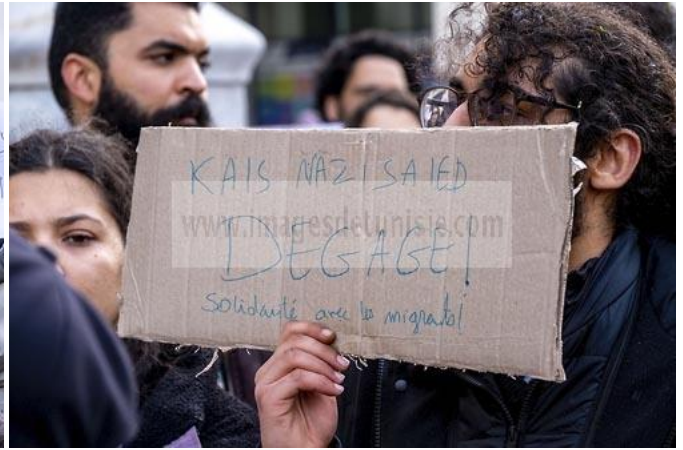 KAIS NAZI SAIED
www.imagesdetunisie.com
DEGAGE!
Solidarité avec les migrants!